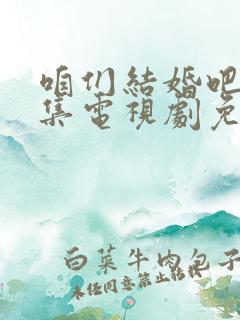 咱们結婚吧
集電視劇免
白菜牛肉包子
未经同意禁止转载